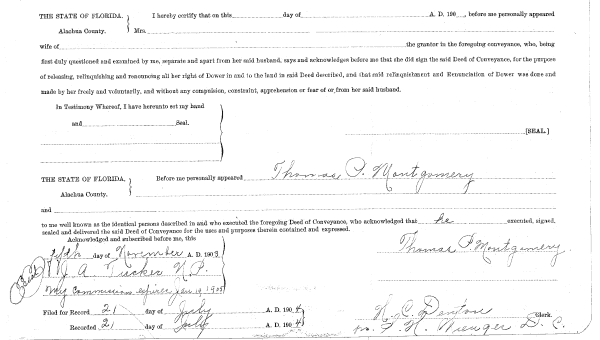 THE STATE OF FLORIDA. I hereby certify that on this day of A. D. 190 , before me personally appeared
Alachua County. Mrs.
wife of the grantor in the foregoing conveyance, who, being
first duly questioned and examined by me, separate and apart from her said husband, says and acknowledges before me that she did sign the said Deed of Conveyance, for the purpose
of releasing, relinquishing and renouncing all her right of Dower in and to the land in said Deed described, and that said relinquishment and Renunciation of Dower was done and
made by her freely and voluntarily, and without any compulsion, constraint, apprehension or fear of or from her said husband.
In Testimony Whereof, I have hereunto set my hand
and Seal.
[SEAL.]
THE STATE OF FLORIDA. Before me personally appeared Thomas P. Montgomery
Alachua County.
and
to me well known as the identical persons described in and who executed the foregoing Deed of Conveyance, who acknowledged that he executed, signed,
sealed and delivered the said Deed of Conveyance for the uses and purposes therein contained and expressed.
Acknowledged and subscribed before me, this
fifth day of November A. D. 1903 Thomas P Montgomery
(Seal) A Tucker N. P.
My Commission expires Jan 19 1905
Filed for Record 21 day of July A. D. 1904 Clerk.
Recorded 21 day of July A. D. 1904 D. C.